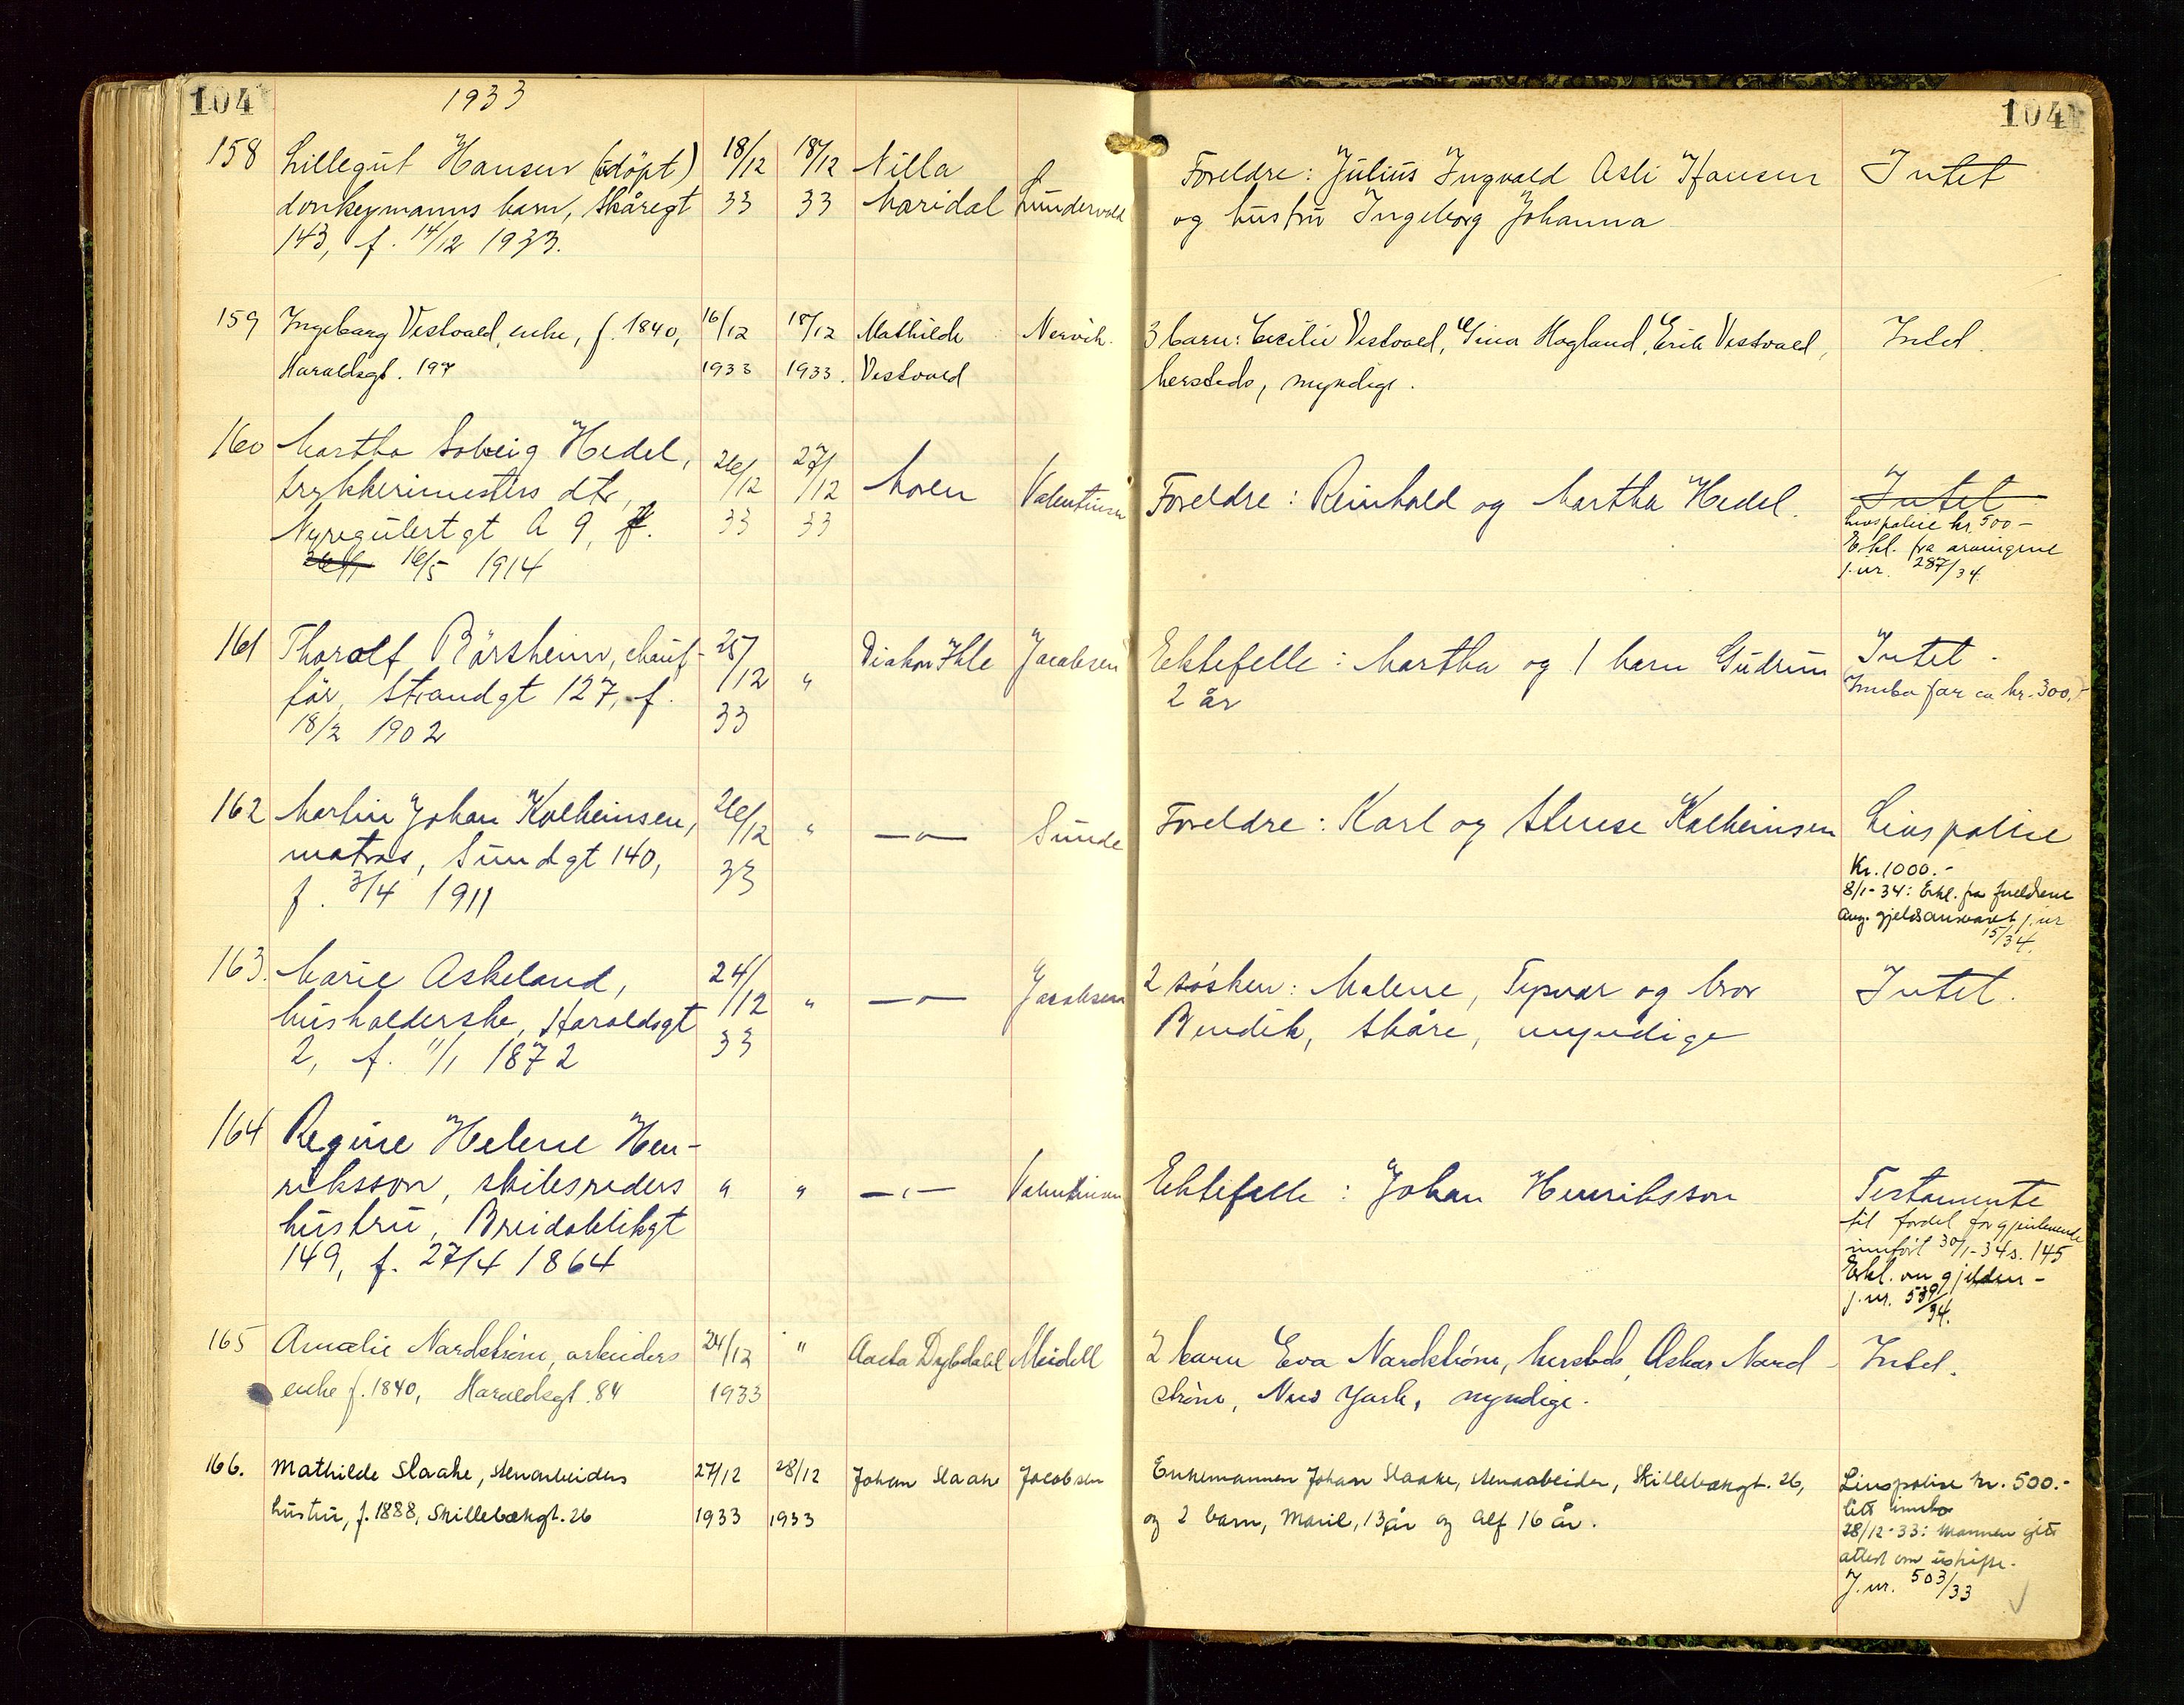 104
1933
104
158 Lillegut Hansen (udöpt) 18/12 18/12 Nilla
donkeymanns barn, Skåregt 33 33 Maridal Lundervold
143, f. 14/12 1933.
Foreldre: Julius Ingvald Asli Hansen Intet
og hustru Ingeborg Johanna
159 Ingeborg Vestvold, enke, f. 1840, 16/12 18/12 Mathilde Nervik.
Haraldsgt. 197 1933 1933. Vestvold
3 barn: Cecilie Vestvold, Gina Hagland, Erik Vestvold, Intet.
hersteds, myndige.
160 Martha Solveig Hedel, 26/12 27/12 Moren Valentinsen
trykkerimesters dtr,
Nyregulertgt A 9, f. 33 33
16/5 1914
Foreldre: Reinhold og Martha Hedel. Intet
Livspolise kr. 500-
Erkl. fra arvingene
j.nr. 287/34.
161 Thorolf Börsheim, chauf- 25/12 " Diakon Ihle Jacobsen
för, Strandgt 127, f. 33
18/2 1902
Ektefelle: Martha og 1 barn Gudrun Intet.
2 år Innbo før ca kr. 300,-
162 Martin Johan Kolheinsen, 26/12 " —"— Sunde
matros, Sundgt 140, 33
f. 3/4 1911
Foreldre: Karl og Therese Kolheinsen Livspolise
Kr. 1000.-
8/1-34: Erkl. fra foreldrene
ang. gjeldsansvaret j.nr
15/34.
163. Marie Askeland, 24/12 " —"— Jacobsen
husholderske, Haraldsgt 33
2, f. 11/1 1872
2 søsken: Malene, Tysvær og bror Intet.
Bendik, Skåre, myndige
164 Regine Helene Hen-
riksson, skibsreders " " —"— Valentinsen
hustru, Breidablikgt
149, f. 27/4 1864
Ektefelle: Johan Henriksson Testamente
til fordel for gjenlevende
innført 30/1-34 s. 145
Erkl. om gjelden-
j.nr. 539/34.
165 Amalie Nordstrøm, arbeiders 24/12 " Aasta Dybdahl Meidell
enke f. 1840, Haraldsgt. 84 1933
2 barn Eva Nordstrøm, hersteds, Oskar Nord- Intet.
strøm, New York, myndige.
166. Mathilde Slaake, stenarbeiders 27/12 28/12 Johan Slaake Jacobsen
hustru, f. 1888, Skillebækgt. 26 1933 1933
Enkemannen Johan Slaake, stenarbeider, Skillebækgt. 26, Livspolise kr. 500.-
og 2 barn, Maril, 13 år og Alf 16 år. litt innbo
28/12-33: Mannen gitt
attest om uskifte.
J.nr. 503/33